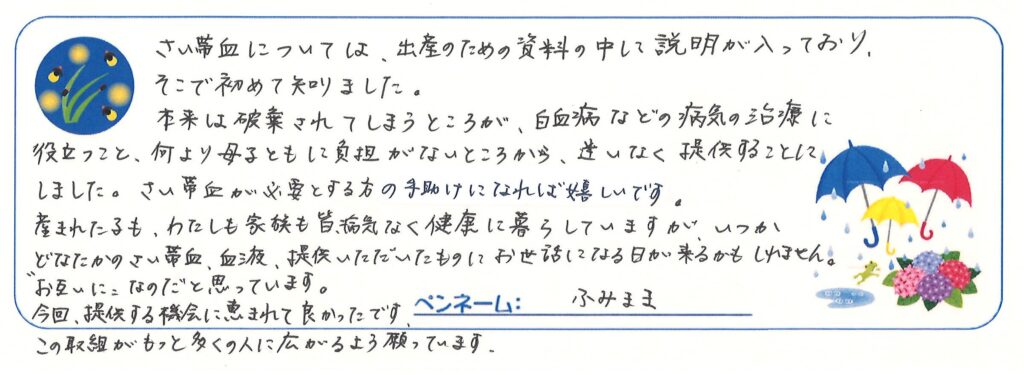 さい帯血については、出産のための資料の中して説明が入っており、
そこで初めて知りました。
本来は破棄されてしまうところが、白血病などの病気の治療に
役立つこと、何より母子ともに負担がないところから、迷いなく提供することに
しました。さい帯血が必要とする方の手助けになれば嬉しいです。
産まれたる子も、わたしも家族も皆病気なく健康に暮らしていますが、いつか
どなたかのさい帯血、血液、提供いただいたものにお世話になる日が来るかもしれません。
"お互いに"なのだと思っています。
今回、提供する機会に恵まれて良かったです。
ペンネーム: ふみまま
この取組がもっと多くの人に広がるよう願っています。